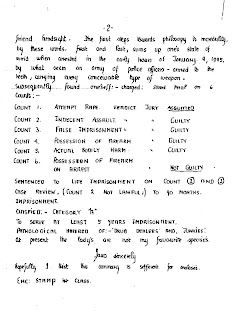 - 2 -
friend hindsight. The first steps towards philosophy is incredulity,
by these words, first and last, sums up one's state of
mind when arrested in the early hours of January 9, 1985,
by what seem an army of police officers - armed to the
teeth, carrying every conceivable type of weapon.
Subsequently found oneself:- charged: Stand trial on 6
counts:-
COUNT 1. ATTEMPT RAPE: VERDICT JURY ASSUMED
COUNT 2. INDECENT ASSAULT " GUILTY
COUNT 3. FALSE IMPRISONMENT " GUILTY
COUNT 4. POSSESSION OF FIREARM " GUILTY
COUNT 5. ACTUAL BODILY HARM " GUILTY
COUNT 6. POSSESSION OF FIREARM
ON ARREST " NOT GUILTY
SENTENCED TO LIFE IMPRISONMENT ON COUNT (2) AND (3)
CASE REVIEW, (COUNT 2 NOT LAWFUL,) TO 40 MONTHS.
IMPRISONMENT.
CLASSIFIED:- CATEGORY "A"
TO SERVE AT LEAST 5 YEARS IMPRISONMENT.
PATHOLOGICAL HATRED OF:- "DRUG DEALERS" AND, "JUNKIES"
At present the lady's are not my favourite species.
Yours sincerely
Hopefully I trust this summary is sufficient for analysis.
ENC: STAMP 1st CLASS.